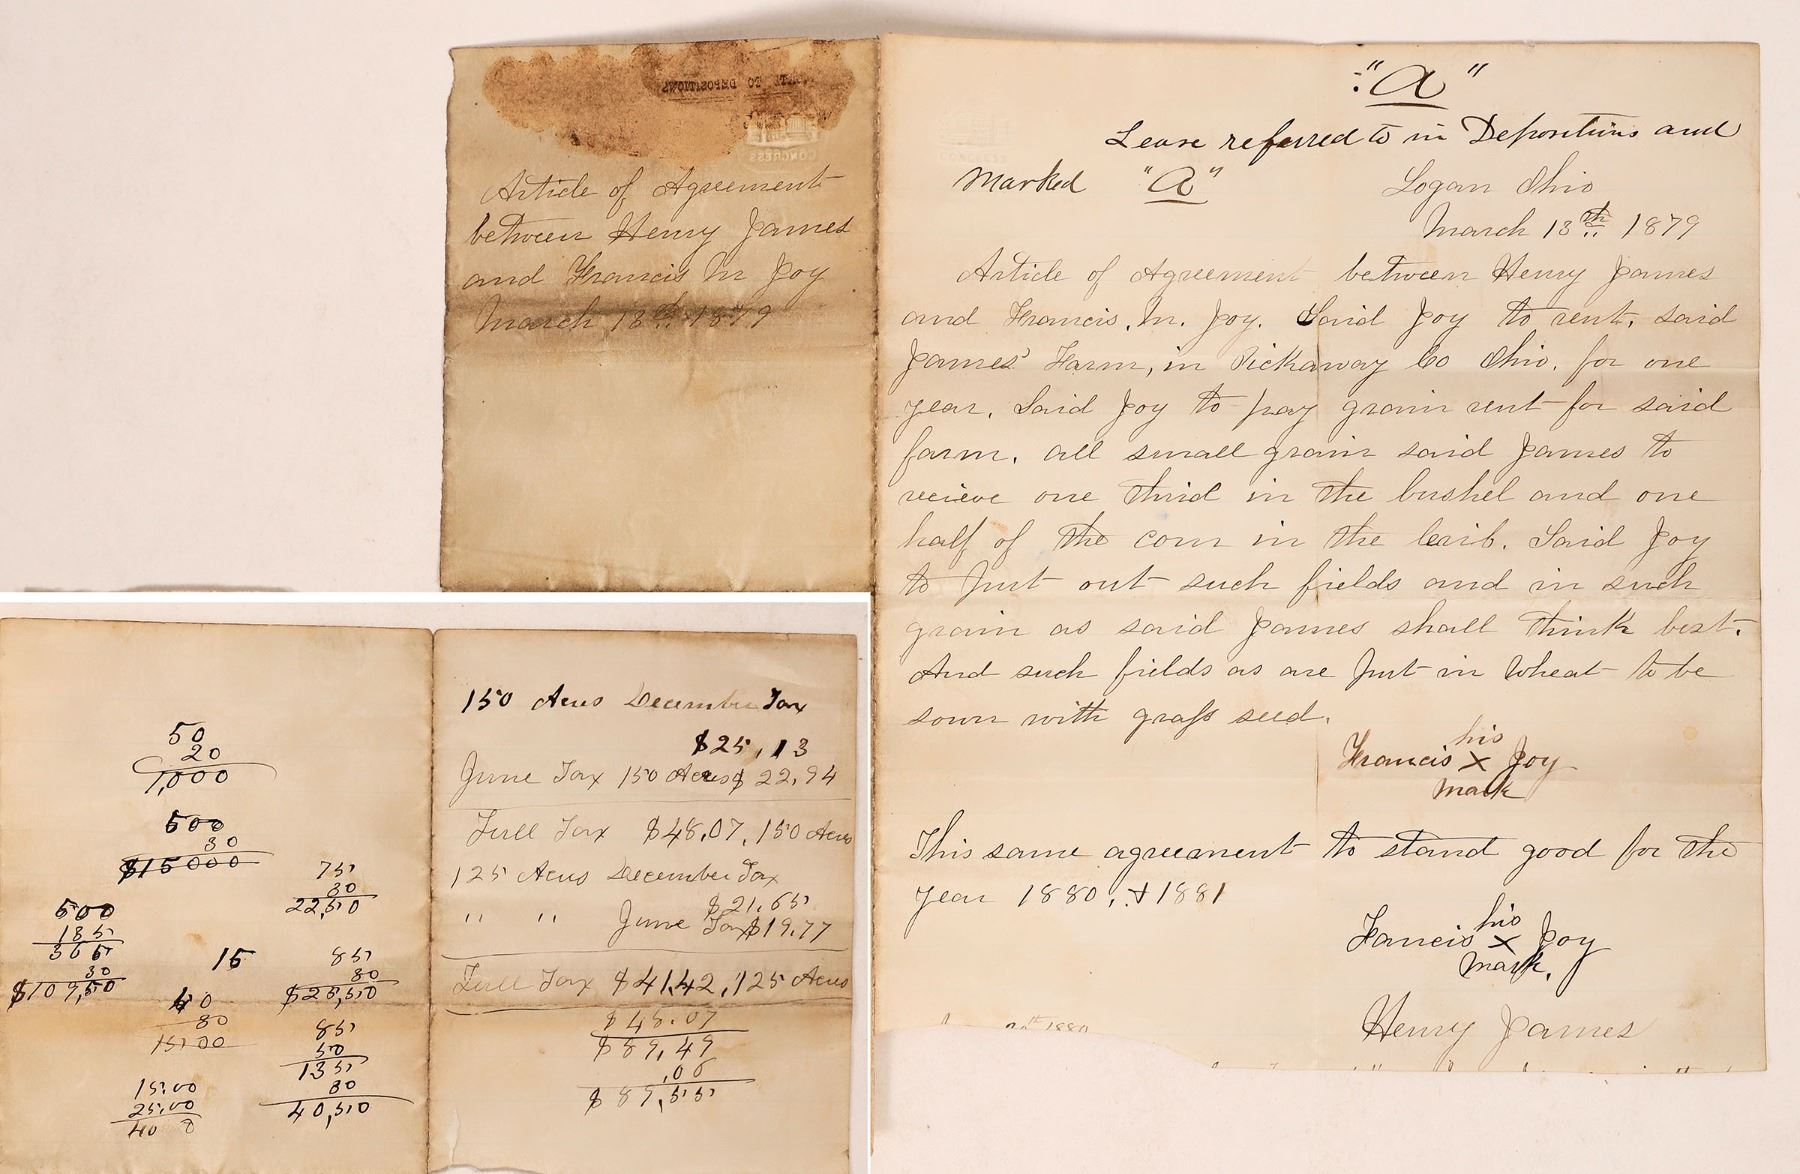 Article of Agreement
between Henry James
and Francis M Joy
March 13th 1879
:"A"
Lease referred to in Depositions and
Marked "A"
Logan Ohio
March 13th 1879
Article of Agreement between Henry James
and Francis. M. Joy. Said Joy to rent, said
James' Farm, in Pickaway Co Ohio. for one
year. Said Joy to pay grain rent for said
farm. all small grain said James to
recieve one third in the bushel and one
half of the corn in the Crib. Said Joy
to put out such fields and in such
grain as said James shall think best.
And such fields as are put in wheat to be
sown with grass seed.
his
Francis X Joy
mark
This same agreement to stand good for the
year 1880, & 1881
his
Francis X Joy
mark.
Henry James
50
20
1,000
500
30
$15000
500
185
365
30
$109,50
15
75
30
22,50
85
30
$25,50
80
1500
85
50
135
30
40,50
15.00
25.00
40
150 Acres December Tax
$25,13
June Tax 150 Acres $ 22.94
Full Tax $48.07, 150 Acres
125 Acres December Tax
$21.65
" " June Tax $19.77
Full Tax $41.42, 125 Acres
$48.07
$89,49
.06
$89,55